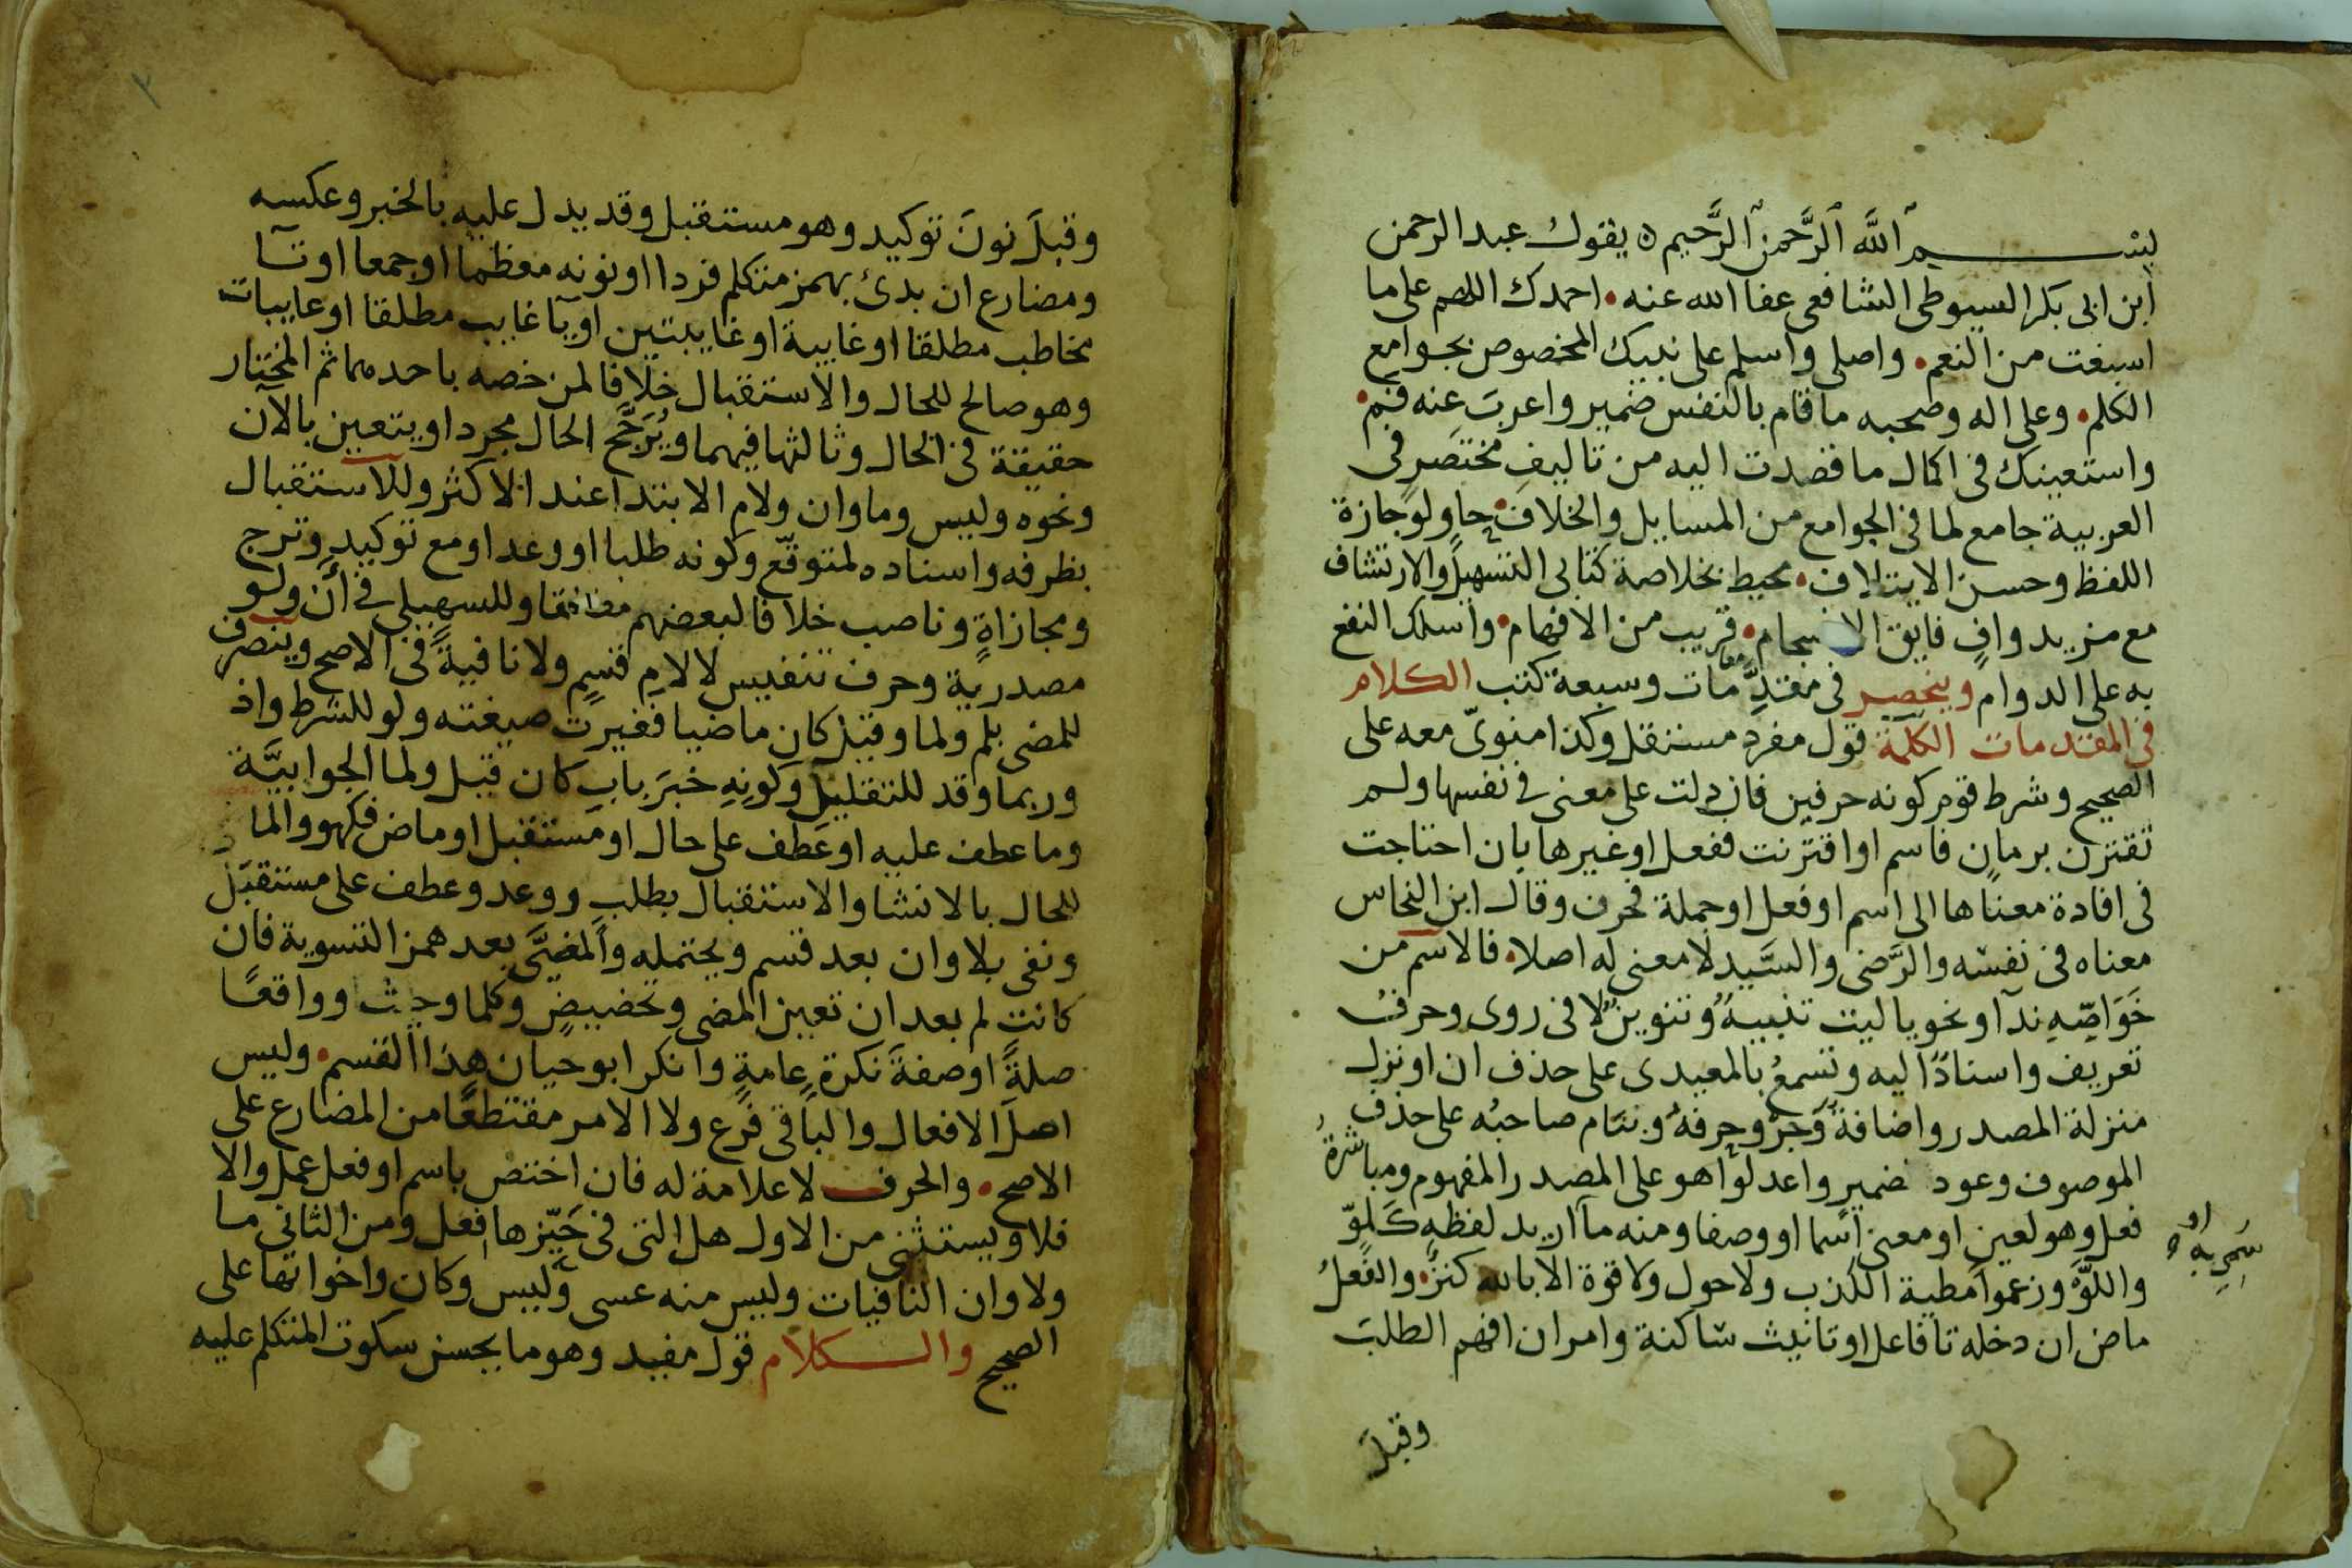 بسم الله الرحمن الرحيم ه يقول عبد الرحمن
ابن ابى بكر السيوطى الشافعى عفا الله عنه • احمدك اللهم على ما
اسبغت من النعم • واصلى واسلم على نبيك المخصوص بجوامع
الكلم • وعلى اله وصحبه ما قام بالنفس ضمير واعرب عنه فم •
واستعينك فى اكمال ما قصدت اليه من تاليفِ مختصَرٍ فى
العربية جامع لما فى الجوامع من المسايل والخلاف • حاوٍ لوجازة
اللفظ وحسن الايتلاف • محيط بخلاصة كتابى التسهيل والارتشاف
مع مزيد وافٍ فايق الانسجام • قريب من الافهام • واسلك النفع
به على الدوام وينحصر فى مقدِّمات وسبعة كتب الكلام
فى المقدمات الكلمة قول مفرد مستقل وكذا منوىّ معه على
الصحيح وشرط قوم كونه حرفين فان دلت على معنى فى نفسها ولم
تقترن بزمان فاسم او اقترنت ففعل او غيرها بان احتاجت
فى افادة معناها الى اسم او فعل او جملة فحرف وقال ابن النحاس
معناه فى نفسه والرَّضى والسَّيد لا معنى له اصلا • فالاسم من
خَوَاصِّهِ ندآ ونحو يا ليت تنبيهٌ وتنوينٌ لا فى روى وحرفُ
تعريف واسنادٌ اليه وتسمعُ بالمعيدى على حذف ان او نزل
منزلة المصدر واضافةٌ وَجَرٌّ وحرفهُ ونام صاحبُه على حذف
الموصوف وعود ضميرٍ واعدلوا هو على المصدر المفهوم ومباشرةُ
فعل وهو لعين او معنى اسما او وصفا ومنه ما اريد لفظه كَلوّ
او
سُمِىَ به
واللوّ وزعموا مطية الكذب ولا حول ولا قوة الا بالله كنزٌ • والفعلُ
ماض ان دخله تا فاعل او تانيث ساكنة وامر ان افهم الطلبَ
وقبلَ
٢
وقبلَ نونَ توكيد وهو مستقبل وقد يدل عليه بالخبر وعكسه
ومضارع ان بدئ بهمز متكلم فردا او نونه معظما او جمعا او تآ
مخاطب مطلقا او غايبة او غايبتين او يآ غايب مطلقا او غايبات
وهو صالح للحال والاستقبال خلافا لمن خصه باحدهما ثم المختار
حقيقة فى الحال وثالثها فيهما ويُرَجَّح الحال مجردا ويتعين بالآن
ونحوه وليس وما وان ولام الابتدا عند الاكثر وللاستقبال
بظرفه واسناده لمتوقَّع وكونه طلبا او وعدا ومع توكيد وترج
ومجازاةٍ وناصب خلافا لبعضهم مطلقا وللسهيلى فى أنْ ولو
مصدرية وحرف تنفيس لا لامِ قسمٍ ولا نافيةً فى الاصح وينصرف
للمضى بلم ولما وقيل كان ماضيا فغيرت صيغته ولو للشرط واذ
وربما وقد للتقليل وكونِهِ خبرَ بابِ كان قيل ولما الجوابيَّة
وما عطف عليه او عَطَف على حال او مستقبل او ماض فكهو والماض
للحال بالانشا والاستقبال بطلبٍ ووعد وعطف على مستقبَل
ونفى بلا وان بعد قسم ويحتمله والمضىَّ بعد همز التسوية فان
كانت لم بعد ان تعين المضى وتحضيضٍ وكلما وحيث وواقعًا
صلةً او صفةَ نكرةٍ عامةٍ وانكر ابو حيان هذا القسم • وليس
اصلَ الافعال والباقى فرع ولا الامر مقتطعًا من المضارع على
الاصح • والحرف لا علامة له فان اختص باسم او فعل عمل والا
فلا ويستثنى من الاول هل التى فى حَيّزها فعل ومن الثانى ما
ولا وان النافيات وليس منه عسى وليس وكان واخواتها على
الصحيح والكلام قول مفيد وهو ما يحسن سكوت المتكلم عليه